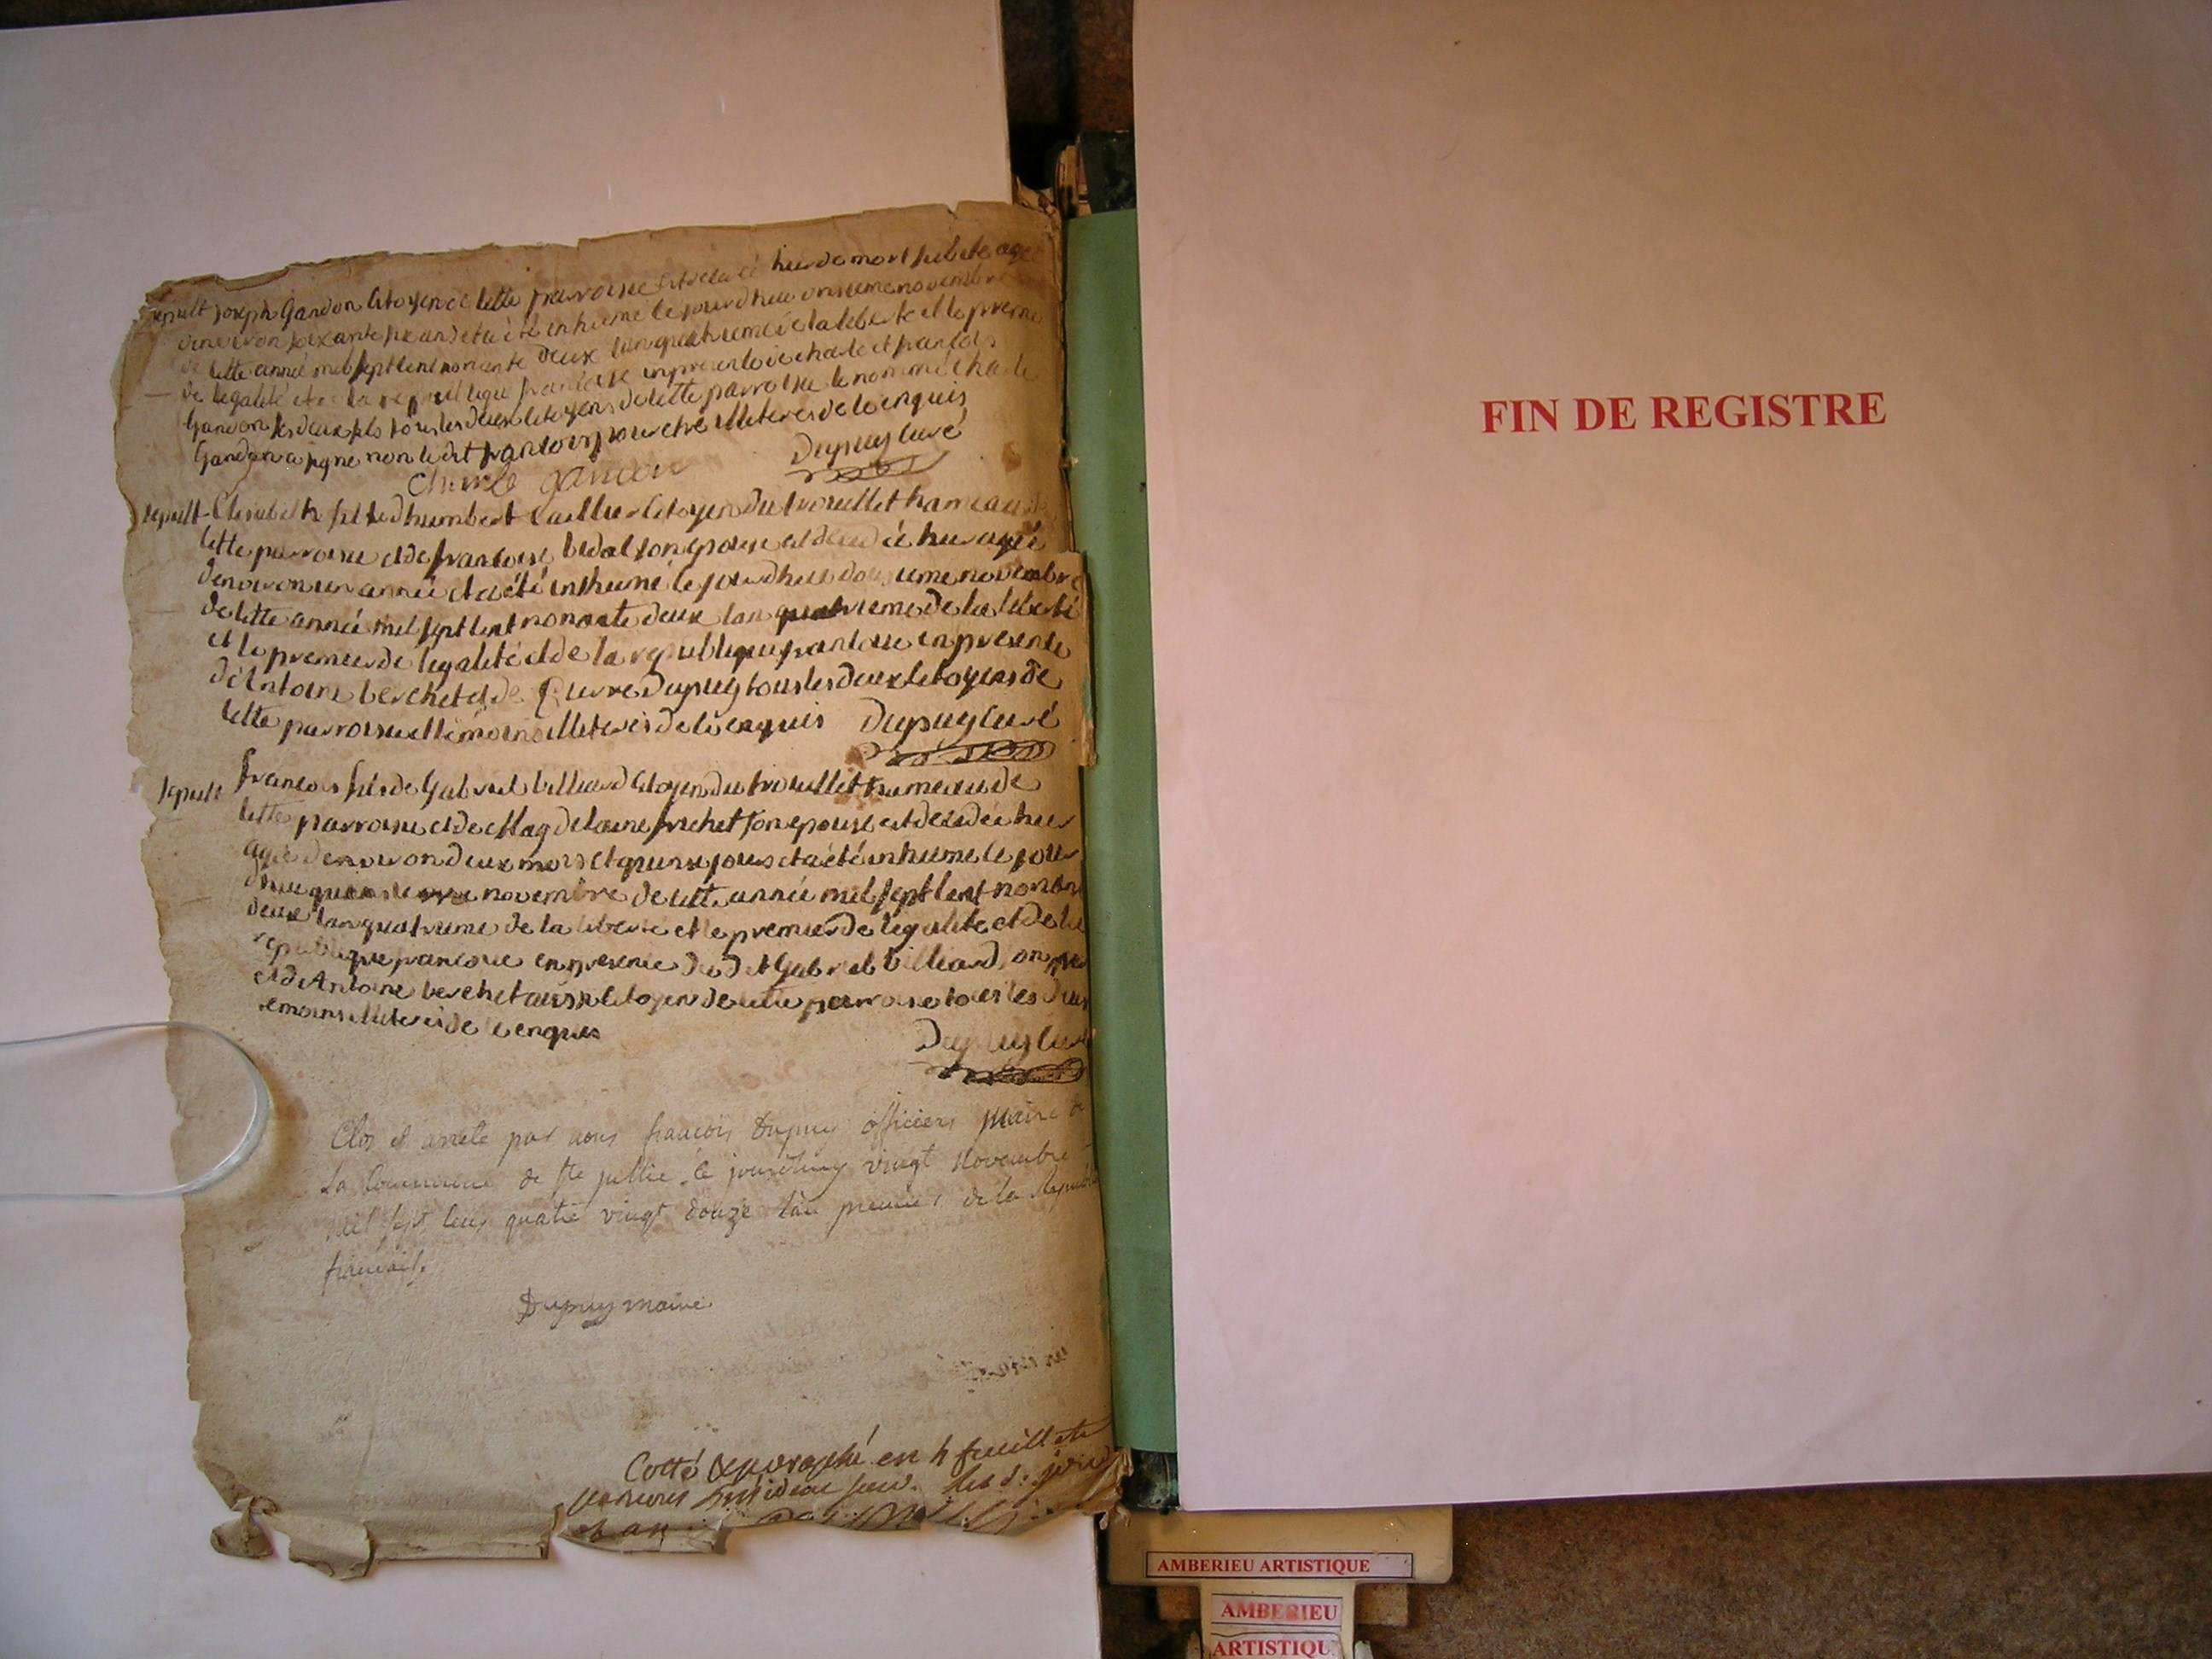 sepult Joseph Gandon Citoyen de cette parroisse est decedé hier de mort subite agé
denviron soixante six ans et a été inhumé le jourdhui onsieme novembre
de cette année mil sept cent nonante deux lan quatrieme de la liberté et le premier
de legalité et de la republique francoise en presence de charle et francois
Gandon ses deux fils tous les deux citoyens de cette parroisse le nommé charle
Gandon a signé non ledit francois pour etre illiteres de ce enquis
Charle gandon Dupuy curé
sepult Elisabeth fille dhumbert Cuillier Citoyen du trouillet hameau de
cette parroisse et de francoise bidal son epouse est decedée hier agée
denviron un année et a été inhumé le jourdhui dousieme novembre
de cette année mil sept cent nonante deux lan quatrieme de la liberté
et le premier de legalité et de la republique francoise en presence
dAntoine berchet et de Pierre Dupuy tous les deux citoyens de
cette parroisse témoins illiteres de ce enquis Dupuy curé
sepult francois fils de Gabriel billiard Citoyen du trouillet hameau de
cette parroisse et de Magdelaine frichet son epouse est decedée hier
agée denviron deux mois et quinse jours et a été inhumé le jour
dhui novembre de cette année mil sept cent nonan
deux lan quatrieme de la liberté et le premier de legalité et de la
republique francoise en presence du dit Gabriel billiard son pere
et de Antoine berchet aussi citoyen de cette parroisse tous les deux
temoins illiteres de ce enquis
Dupuy curé
Clos et arrete par nous francois Dupuy officiers Maire de
La Commune de Ste jullie le jourdhuy vingt Novembre
mil sept cens quatre vingt douze lan premier de la Republi
francaise.
Dupuy maire
Cotté & paraphé en 4 feuillets
par nous président
FIN DE REGISTRE
AMBERIEU ARTISTIQUE
AMBERIEU
ARTISTIQU